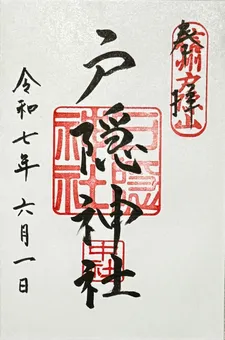 奉拝
戸隠神社
戸隠神社
中社
令和七年六月一日